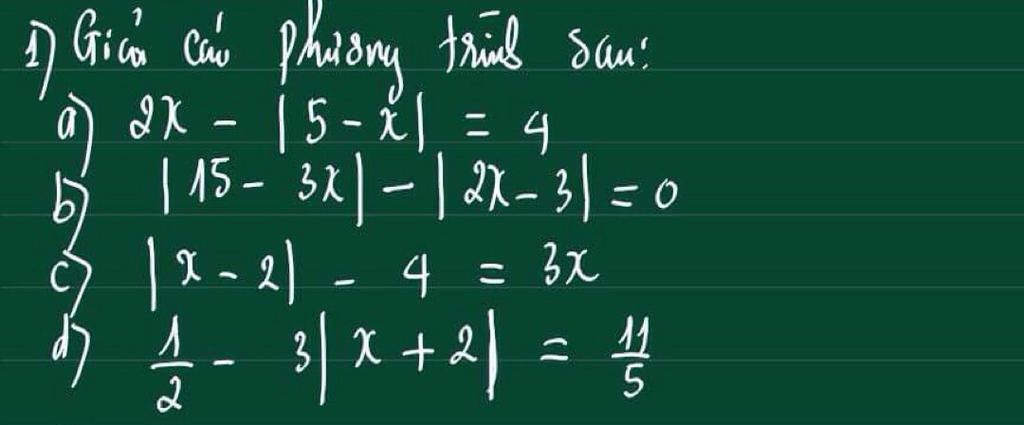 1) Giải các phương trình sau:
a) 2x - |5 - x| = 4
b) |15 - 3x| - |2x - 3| = 0
c) |x - 2| - 4 = 3x
d) 1/2 - 3|x + 2| = 11/5